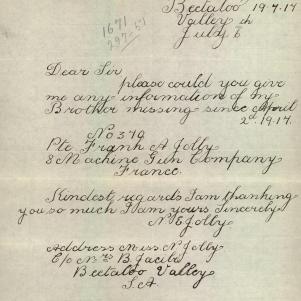 Beetaloo 19.7.17
Valley
July 6
1671
Dear Sir
please could you give
me any information of my
Brother missing since April
2d. 19.17.
No 374
Pte Frank A Jolly
8 Machine Gun Company
France.
Kindest regards I am thanking
you so much I am yours Sincerely
N E Jolly
Address Miss N Jolly
C/o Mrs B. Jacobs
Beetaloo Valley
S.A